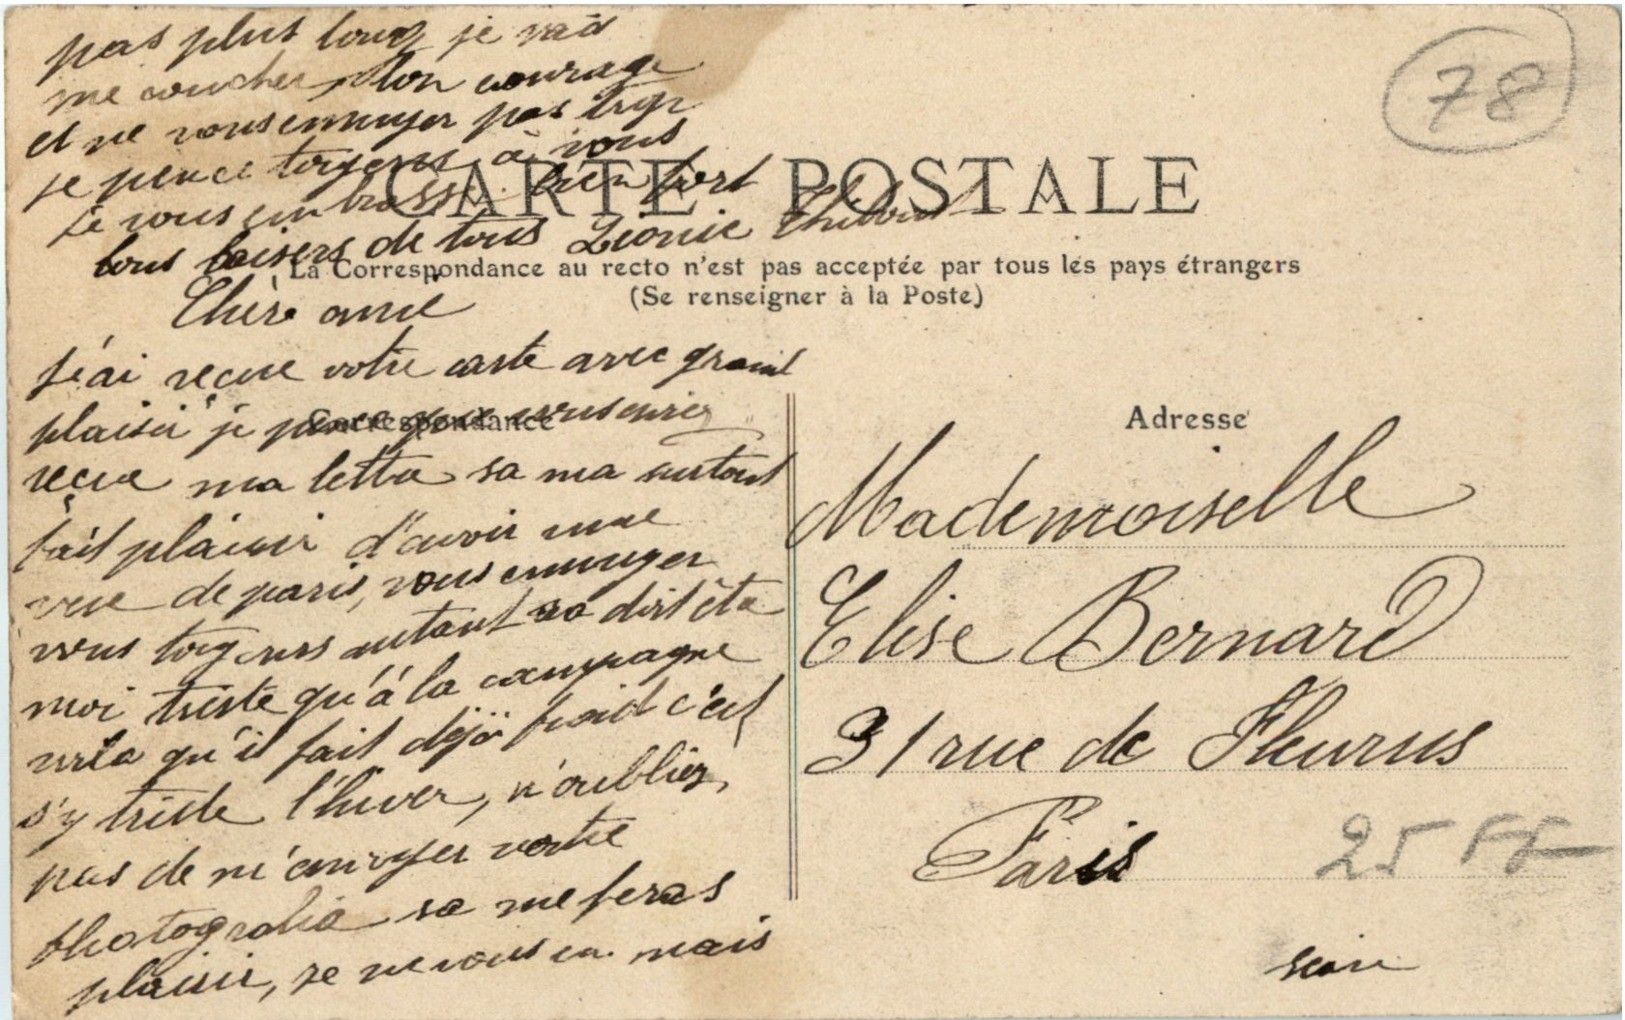 pas plus long je vais
me coucher, bon courage
et ne vous ennuyer pas trop
je pence tojours à vous
je vous embrasse bien fort
bons baisers de tous Léonie
78
CARTE POSTALE
La Correspondance au recto n'est pas acceptée par tous les pays étrangers
(Se renseigner à la Poste)
Chère amie
j'ai reçue votre carte avec grand
plaisir je pence que vous
reçue ma lettre sa ma surtout
fait plaisir d'avoir une
vue de paris, vous ennuyer
vous tojours autant sa doit être
moi triste qu'à la campagne
voila qu'il fait déjà froid c'est
s'y triste l'hiver, n'oubliez
pas de m'envoyer votre
photografie sa me feras
plaisir, je ne vous en mais
Correspondance
Adresse
Mademoiselle
Elise Bernard
31 rue de Fleurus
Paris
25 FF
seine